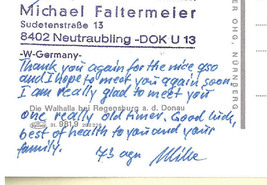 Michael Faltermeier
Sudetenstraße 13
8402 Neutraubling -DOK U 13
-W-Germany-
Thank you again for the nice qso
and I hope to meet you again soon
I am really glad to meet you
Die Walhalla bei Regensburg a. d. Donau
one really old timer. Good luck,
best of health to you and your
family.
73 agn Mike
OHG, NÜRNBERG